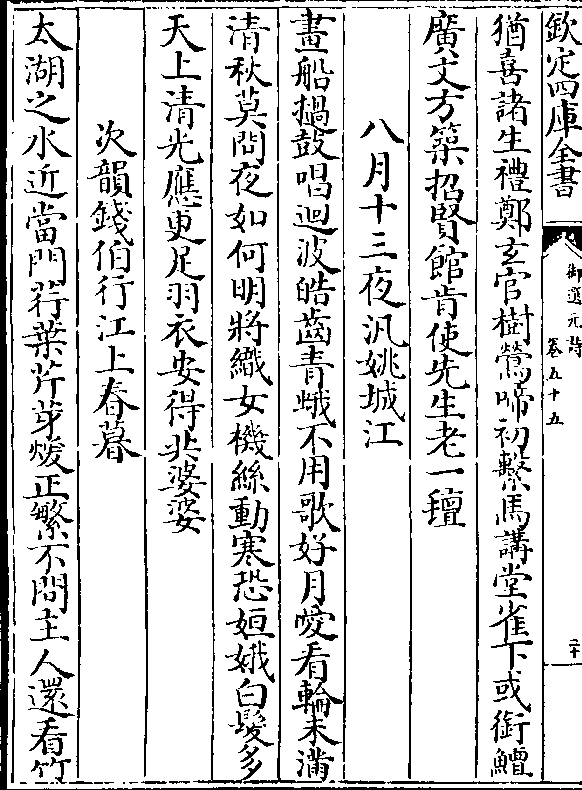 欽定四庫全書
御選元詩
卷五十五
二十
猶喜諸生禮鄭玄官樹鶯啼初繫馬講堂雀下或銜鱣
廣文方築招賢館肯使先生老一氊
八月十三夜汎姚城江
畫船撾鼓唱迴波皓齒青蛾不用歌好月愛看輪未滿
清秋莫問夜如何明將織女機絲動寒恐姮娥白髮多
天上清光應更足羽衣安得共婆娑
次韻錢伯行江上春暮
太湖之水近當門荇葉芹芽煖正繁不問主人還看竹